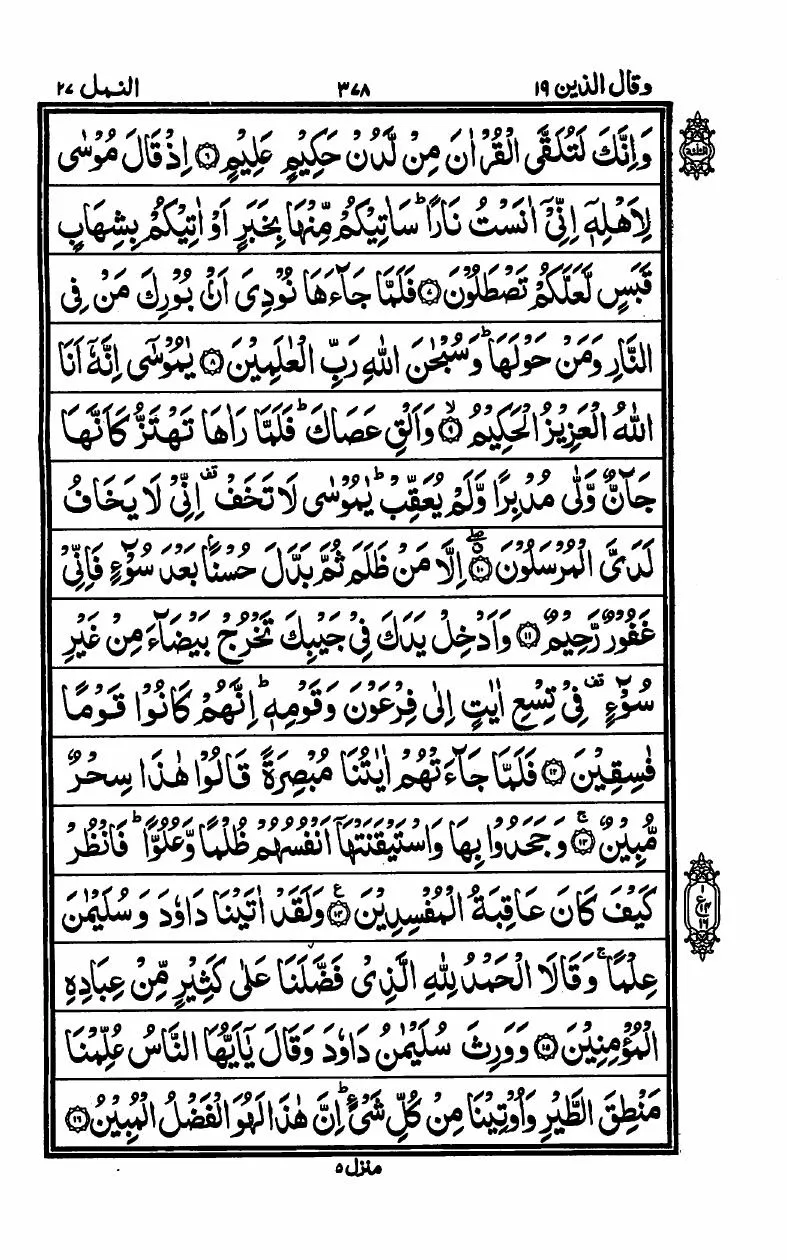 وقال الذين ١٩ ٣٧٨ النمل ٢٧
وَاِنَّكَ لَتُلَقَّى الْقُرْاٰنَ مِنْ لَّدُنْ حَكِيْمٍ عَلِيْمٍ ۝٦ اِذْ قَالَ مُوْسٰى
لِاَهْلِهٖۤ اِنِّيْۤ اٰنَسْتُ نَارًا ؕ سَاٰتِيْكُمْ مِّنْهَا بِخَبَرٍ اَوْ اٰتِيْكُمْ بِشِهَابٍ
قَبَسٍ لَّعَلَّكُمْ تَصْطَلُوْنَ ۝٧ فَلَمَّا جَآءَهَا نُوْدِيَ اَنْۢ بُوْرِكَ مَنْ فِي
النَّارِ وَمَنْ حَوْلَهَا ؕ وَسُبْحٰنَ اللّٰهِ رَبِّ الْعٰلَمِيْنَ ۝٨ يٰمُوْسٰۤى اِنَّهٗۤ اَنَا
اللّٰهُ الْعَزِيْزُ الْحَكِيْمُ ۙ۝٩ وَاَلْقِ عَصَاكَ ؕ فَلَمَّا رَاٰهَا تَهْتَزُّ كَاَنَّهَا
جَآنٌّ وَّلّٰى مُدْبِرًا وَّلَمْ يُعَقِّبْ ؕ يٰمُوْسٰى لَا تَخَفْ قف اِنِّيْ لَا يَخَافُ
لَدَيَّ الْمُرْسَلُوْنَ ۝١٠ اِلَّا مَنْ ظَلَمَ ثُمَّ بَدَّلَ حُسْنًۢا بَعْدَ سُوْٓءٍ فَاِنِّيْ
غَفُوْرٌ رَّحِيْمٌ ۝١١ وَاَدْخِلْ يَدَكَ فِيْ جَيْبِكَ تَخْرُجْ بَيْضَآءَ مِنْ غَيْرِ
سُوْٓءٍ قف فِيْ تِسْعِ اٰيٰتٍ اِلٰى فِرْعَوْنَ وَقَوْمِهٖ ؕ اِنَّهُمْ كَانُوْا قَوْمًا
فٰسِقِيْنَ ۝١٢ فَلَمَّا جَآءَتْهُمْ اٰيٰتُنَا مُبْصِرَةً قَالُوْا هٰذَا سِحْرٌ
مُّبِيْنٌ ۚ۝١٣ وَجَحَدُوْا بِهَا وَاسْتَيْقَنَتْهَاۤ اَنْفُسُهُمْ ظُلْمًا وَّعُلُوًّا ؕ فَانْظُرْ
كَيْفَ كَانَ عَاقِبَةُ الْمُفْسِدِيْنَ ۝١٤ ع وَلَقَدْ اٰتَيْنَا دَاوٗدَ وَسُلَيْمٰنَ
عِلْمًا ۚ وَقَالَا الْحَمْدُ لِلّٰهِ الَّذِيْ فَضَّلَنَا عَلٰى كَثِيْرٍ مِّنْ عِبَادِهِ
الْمُؤْمِنِيْنَ ۝١٥ وَوَرِثَ سُلَيْمٰنُ دَاوٗدَ وَقَالَ يٰۤاَيُّهَا النَّاسُ عُلِّمْنَا
مَنْطِقَ الطَّيْرِ وَاُوْتِيْنَا مِنْ كُلِّ شَيْءٍ ؕ اِنَّ هٰذَا لَهُوَ الْفَضْلُ الْمُبِيْنُ ۝١٦
منزل ٥